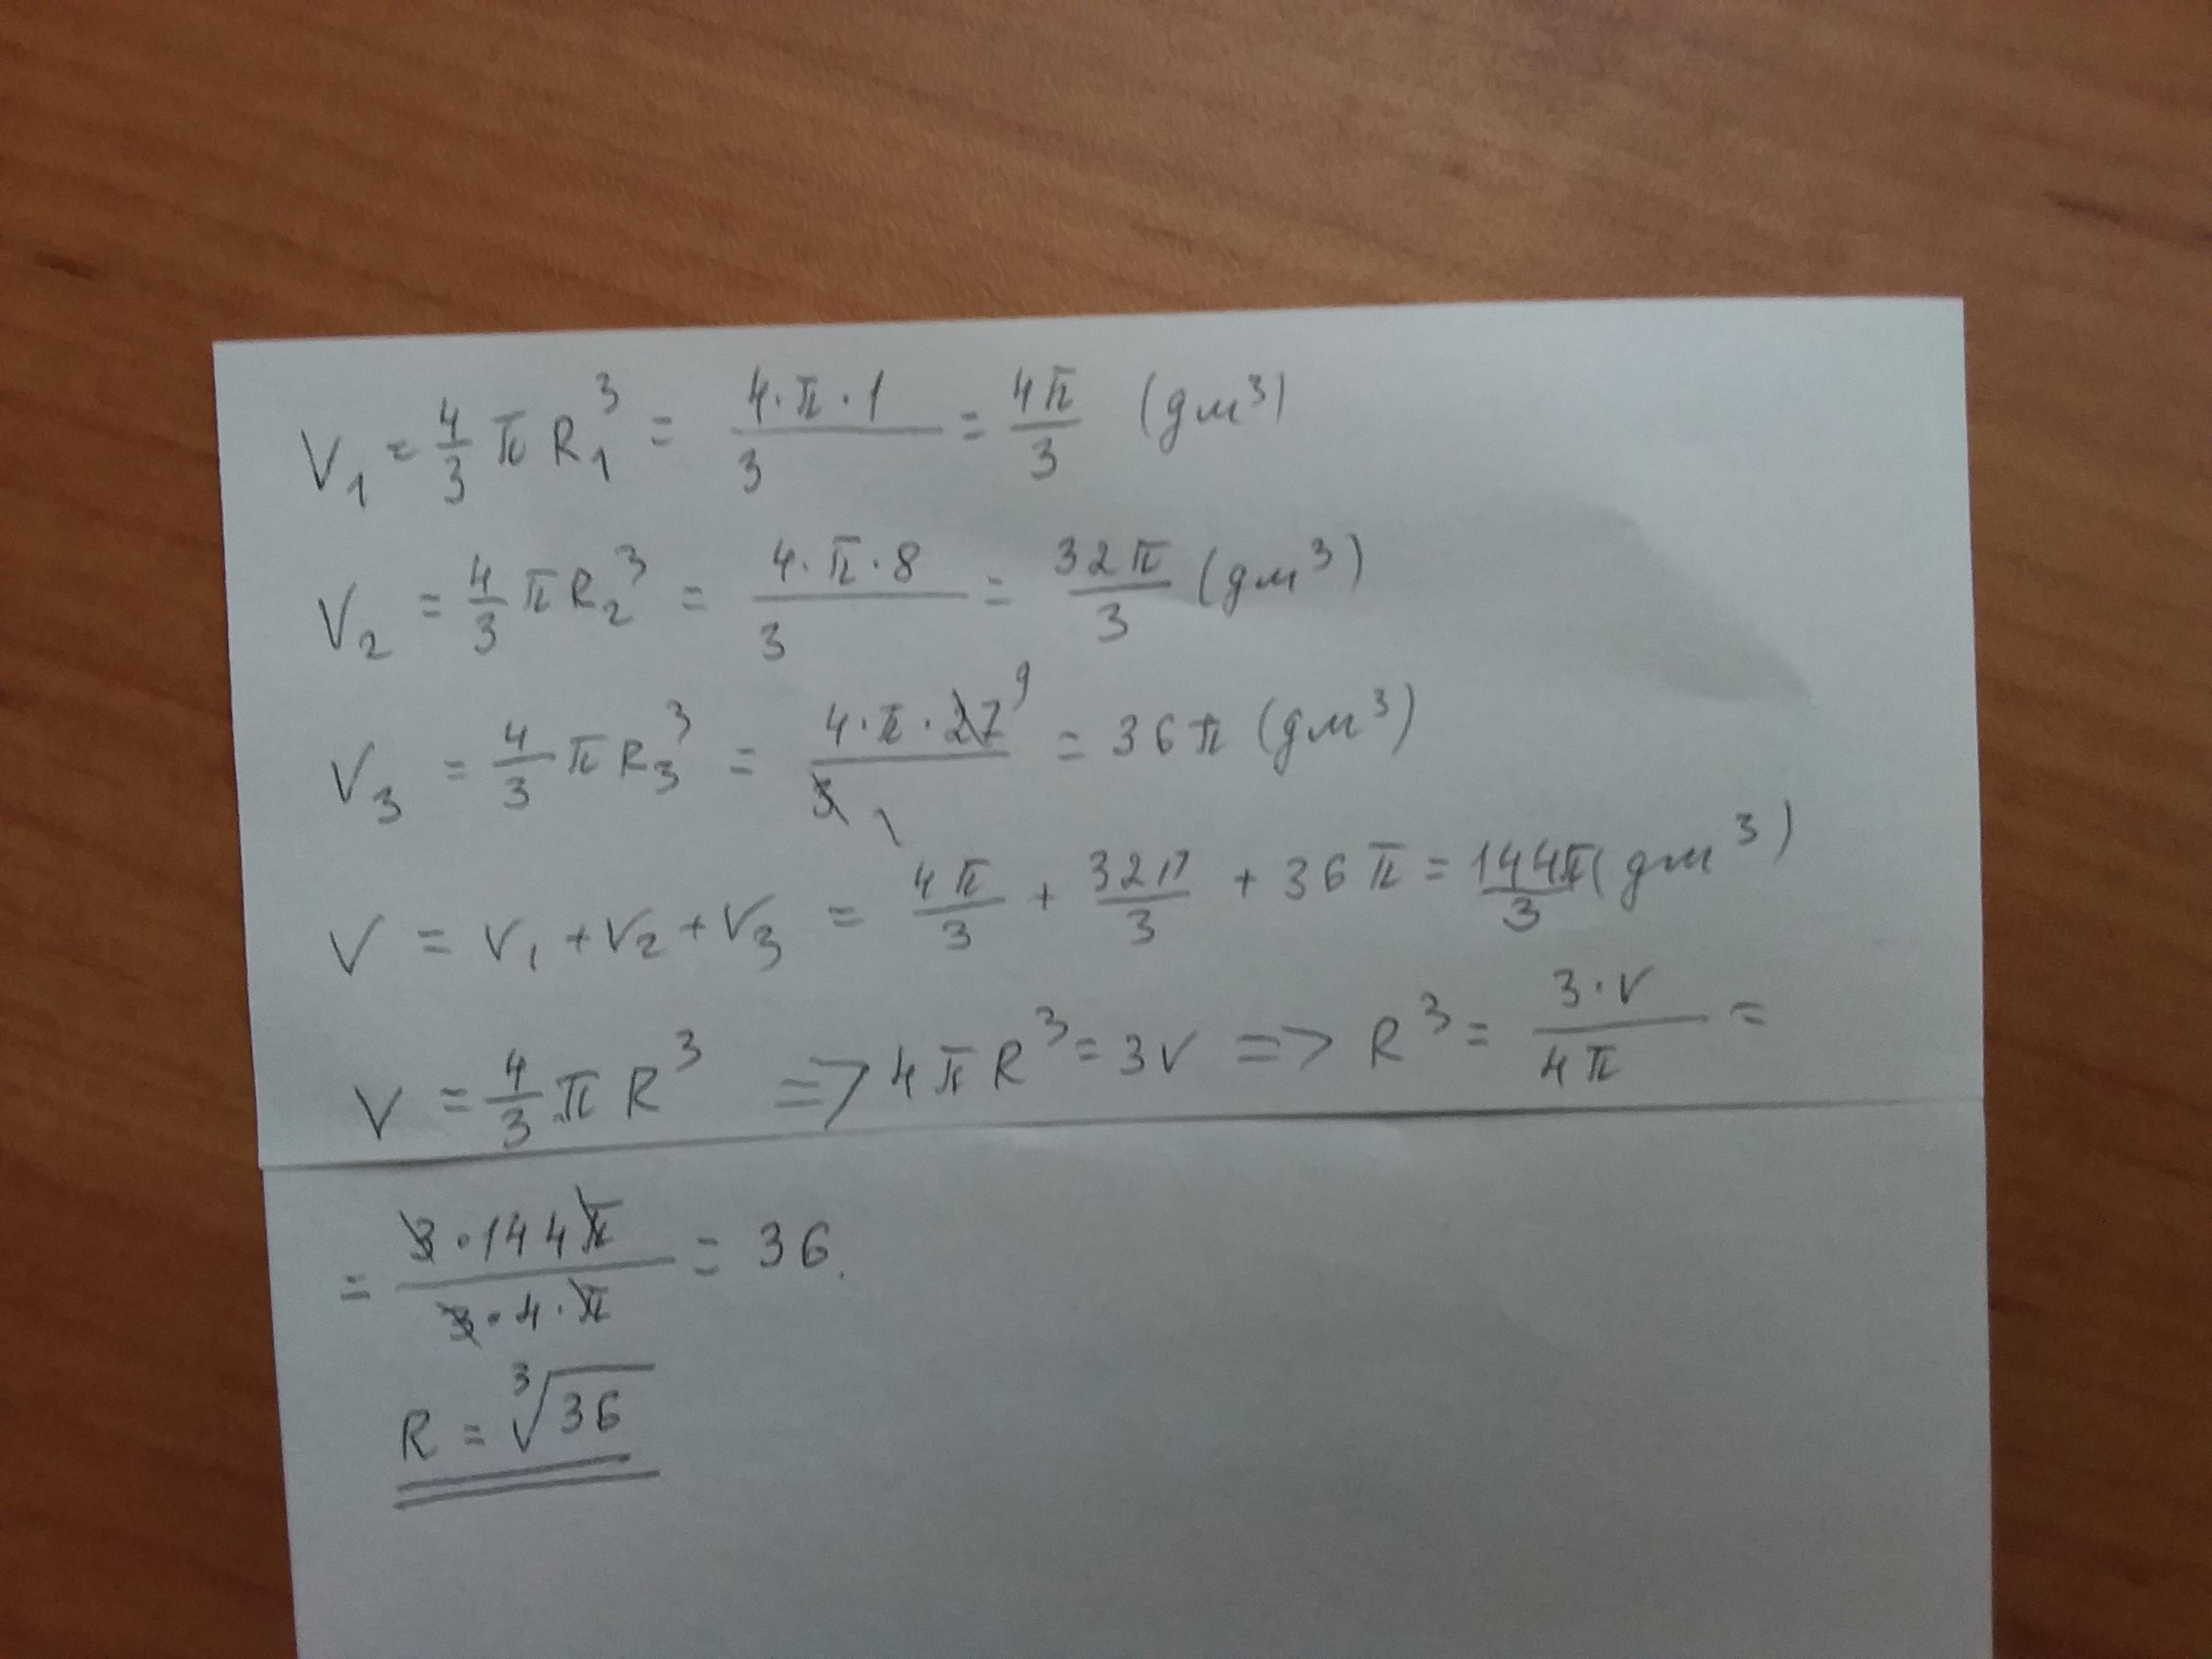 V₁ = 4/3 π R₁³ = 4·π·1/3 = 4π/3 (дм³)
V₂ = 4/3 π R₂³ = 4·π·8/3 = 32π/3 (дм³)
V₃ = 4/3 π R₃³ = 4·π·27 9/3 1 = 36π (дм³)
V = V₁ + V₂ + V₃ = 4π/3 + 32π/3 + 36π = 144π/3 (дм³)
V = 4/3 π R³ => 4πR³ = 3V => R³ = 3·V/4π =
= 3·144π/3·4·π = 36.
R = ³√36